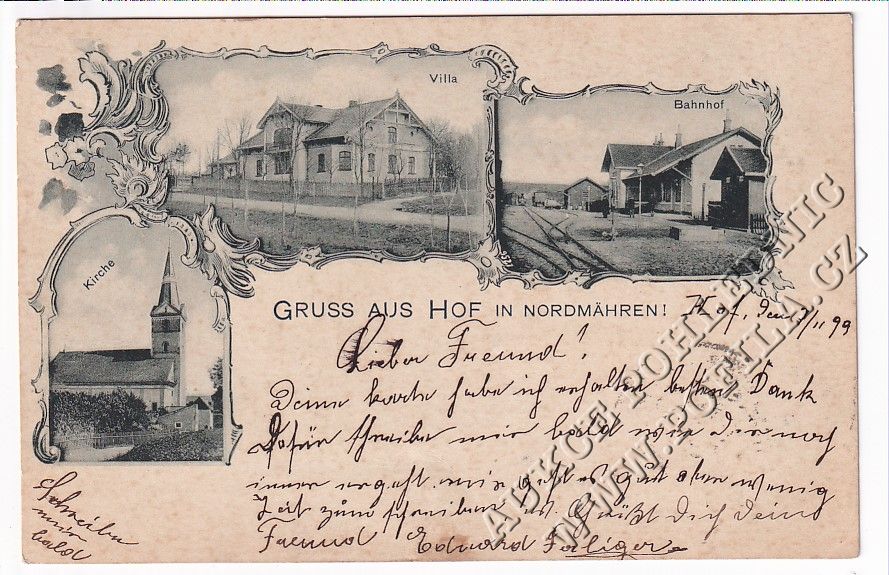 Villa
Bahnhof
Kirche
GRUSS AUS HOF IN NORDMÄHREN!
Hof, 7/11 99
Lieber Freund!
Deine karte habe ich erhalten besten Dank
Dafür schreibe mir bald wie Dir noch
immer ergeht mir geht es gut aber wenig
Zeit zum schreiben ist. Grüßt Dich Dein
Freund Eduard
Schreibe
mir
bald
AUKCE POHLEDNIC
WWW.POFILA.CZ